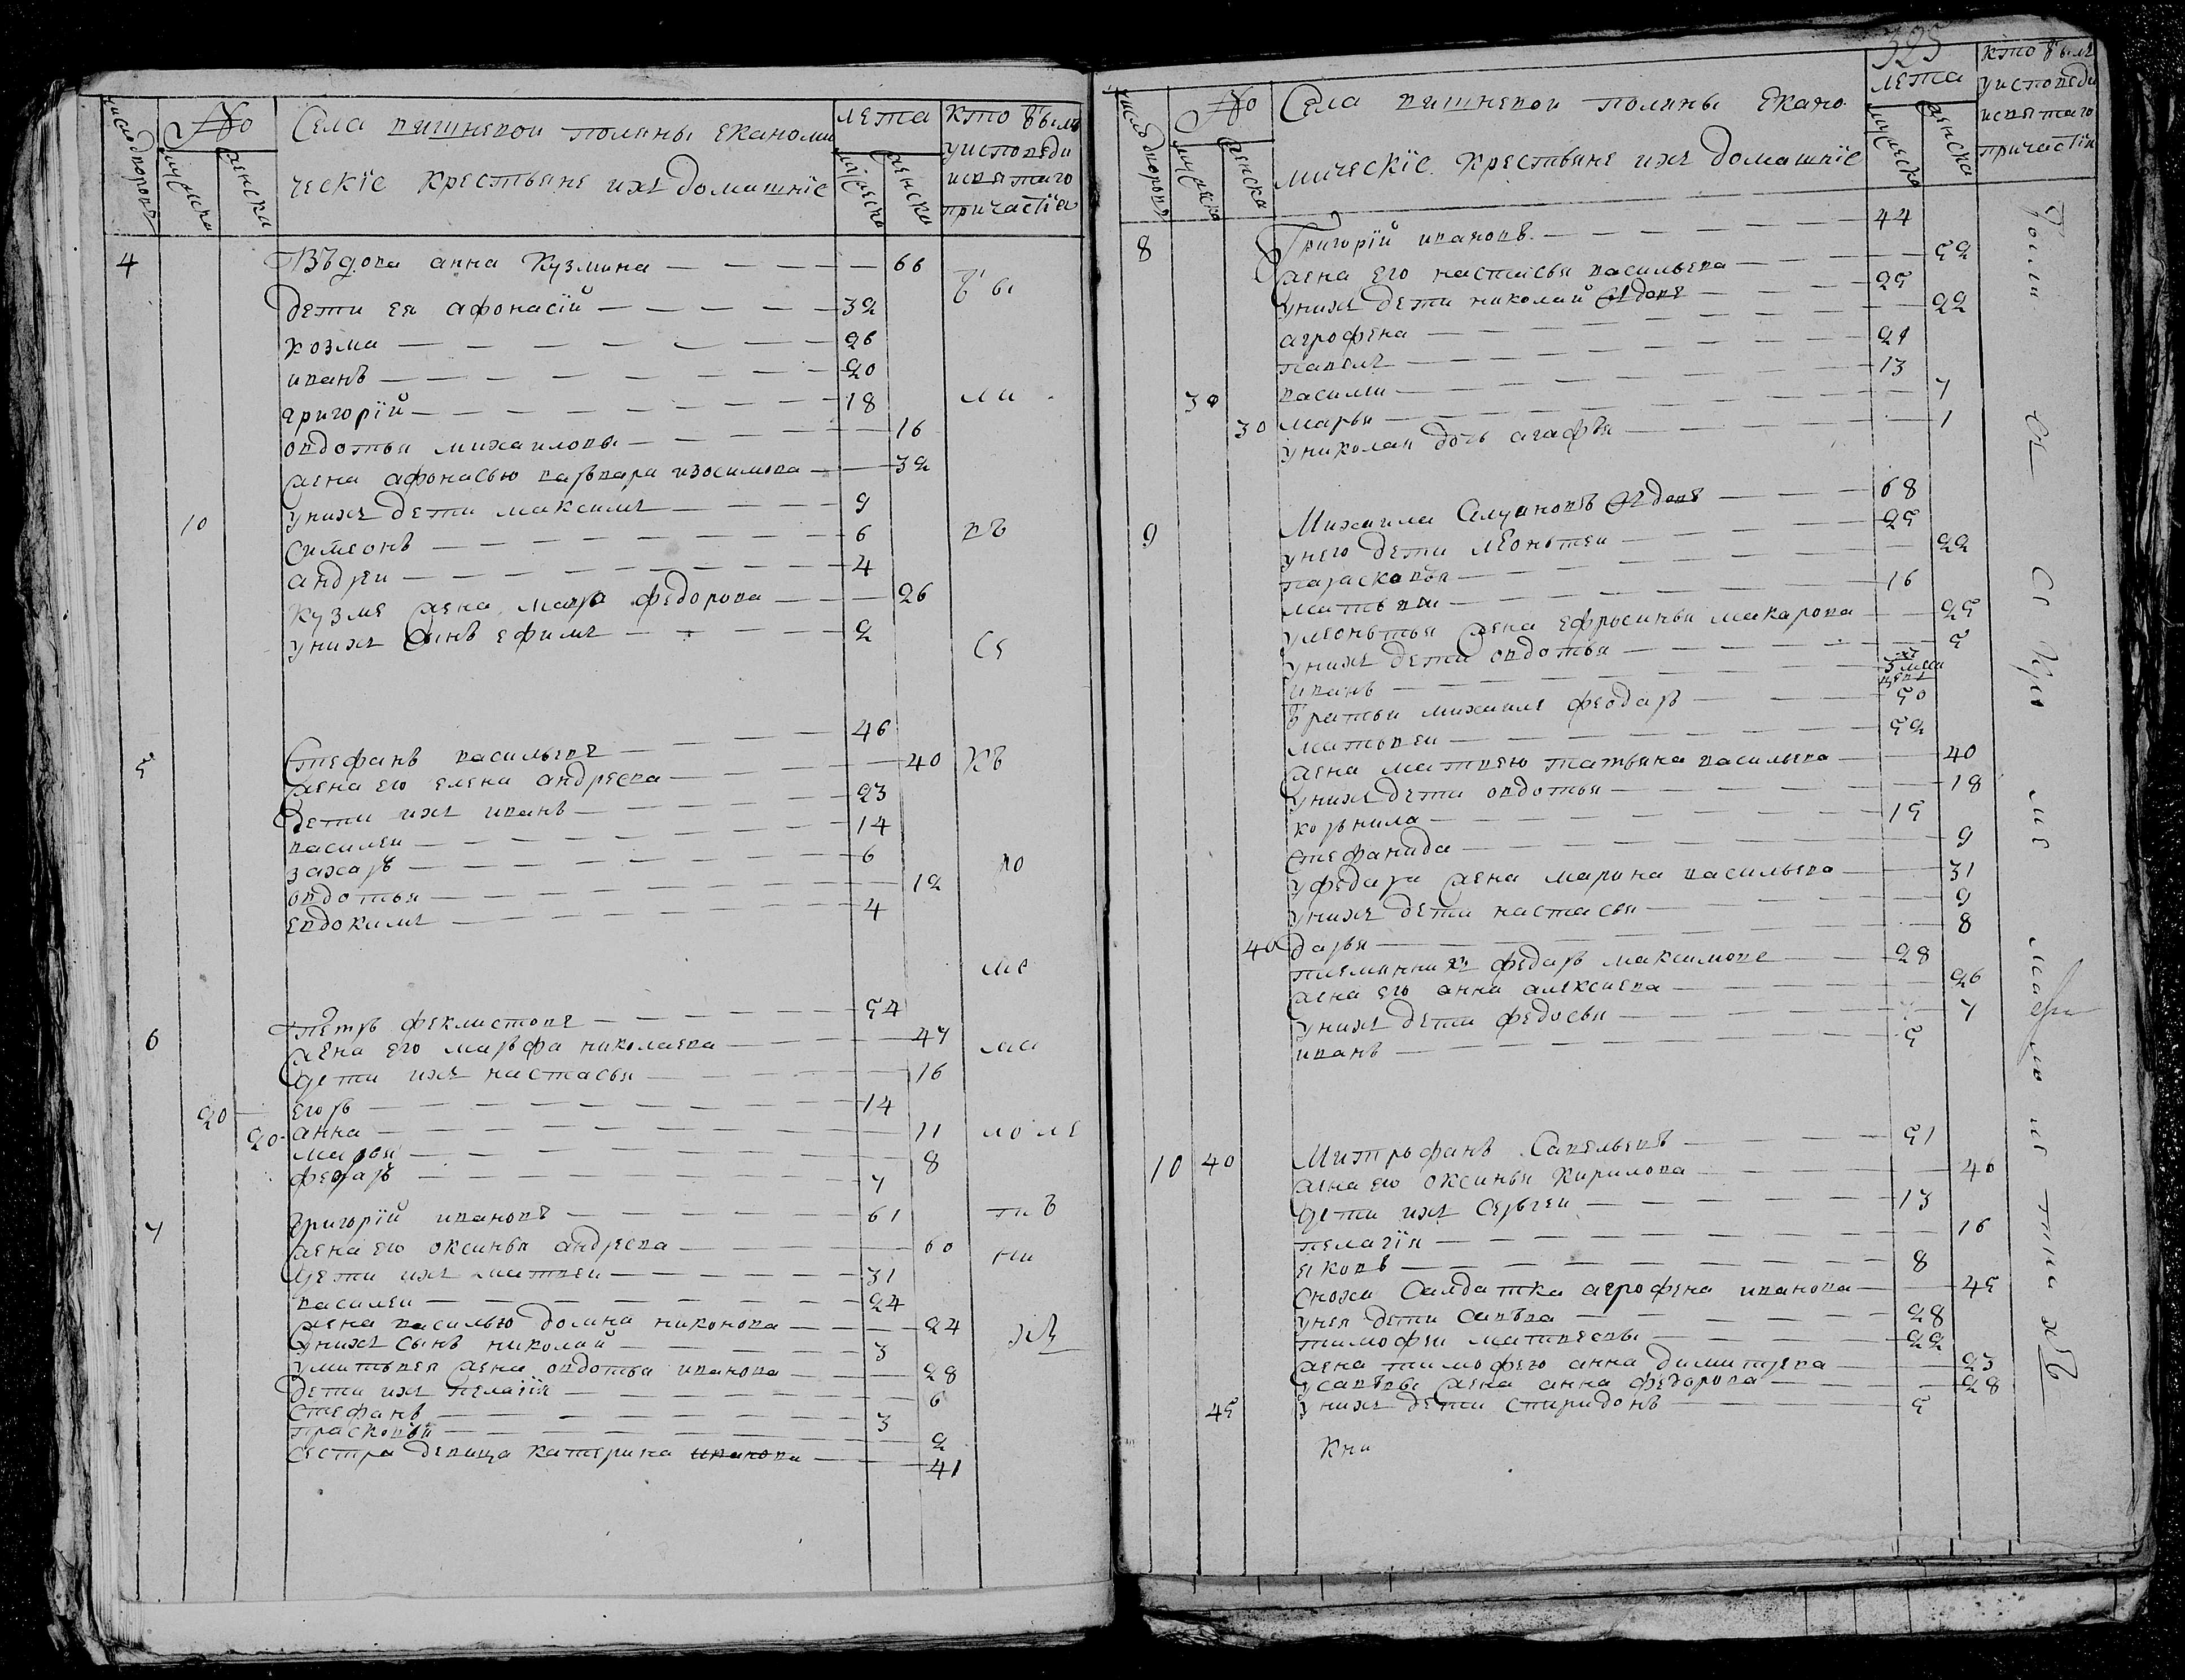 число дворовъ № Села вишневои поляны еканоми лета кто былъ
мужеска женска ческїе крестьяне ихъ домашнїе мужеска женска уисповеди
исвятаго
причастїя
4 Въдова анна Кузмина 66
бы
дети ея афонасїй 32
козма 26
иванъ 20
григорїй 18 ли
овдотьи михаиловы 16
жена афонасью варвара изосимова 32
10 унихъ дети максимъ 9
симеонъ 6 въ
андреи 4
кузме жена марья федорова 26
унихъ сынъ ефимъ 2
се
5 Стефанъ васильевъ 46
жена его елена андреева 40 къ
дети ихъ иванъ 23
василеи 14
захаръ 6 ро
овдотья 12
евдокимъ 4
ме
6 Петръ феклистовъ 54
жена его марьфа николаева 47 ма
дети ихъ настасья 16
20 егоръ 14
20 анна 11 моле
марьи 8
федаръ 7
7 григорїй ивановъ 61
жена его оксинья андреева 60
дети ихъ матвеи 31 ни
василеи 24
жена василью домна никонова 24
унихъ сынъ николай 3
уматьвея жена овдотья иванова 28
дети ихъ пелагїя 6
стефанъ 3
прасковьи 2
сестра девица катерина иванова 41
325
число дворовъ № Села вишневои поляны екано лета кто былъ
мужеска женска мическїе крестьяне ихъ домашнїе мужеска женска уисповеди
исвятаго
причастїя
8 Григорїй ивановъ 44
жена его настасья васильева 52
унихъ дети николай вдовъ 25
агрофена 22
павелъ 21
30 васили 13
30 марья 7
униколая дочь агафья 1
9 Михаила вдовъ 68
унего дети леоньтеи 25
парасковья 22
матьвеи 16
улеоньтья жена ефросинья макарова 25
унихъ дети овдотья 5
иванъ
братья михаиле феодаръ 50
матьвеи 52
жена матвею татьяна васильева 40
унихъ дети овдотья 18
корьнила 15
стефанида 9
уфедара жена марина васильева 31
унихъ дети настасья 9
40 дарья 8
племянникъ федаръ максимовъ 28
жена его анна алексиева 26
унихъ дети федосья 7
иванъ 5
10 40 Митрофанъ Савельевъ 51
жена его оксинья кирилова 46
дети ихъ сергеи 13
пелагїя 16
яковъ 8
сноха салдатка агрофена иванова 45
унея дети савъва 28
тимофеи матвеевы 22
жена тимофею анна димитрева 23
усавъвы жена анна федорова 28
45 унихъ дети спиридонъ 5
Кни